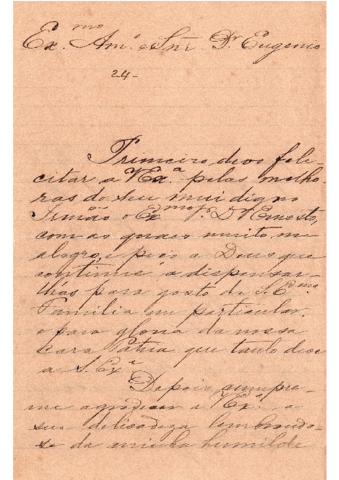 Ex.mo Am.o e Snr. Dr Eugenio
24-
Primeiro devo feli-
citar a V Ex.a pelas melho-
ras do seu mui digno
Irmão o Ex.mo Sr. Dr Ernesto,
com as quaes muito me
alegro, e peço a Deus que
continue a dispensar-
lhas para gosto de S. Ex.ma
Familia em particular,
e para gloria da nossa
cara Patria que tanto deve
a S. Ex.a
Depois cumpre-
me agradecer a V Ex.a a
sua delicadeza lembrando-
se da minha humilde